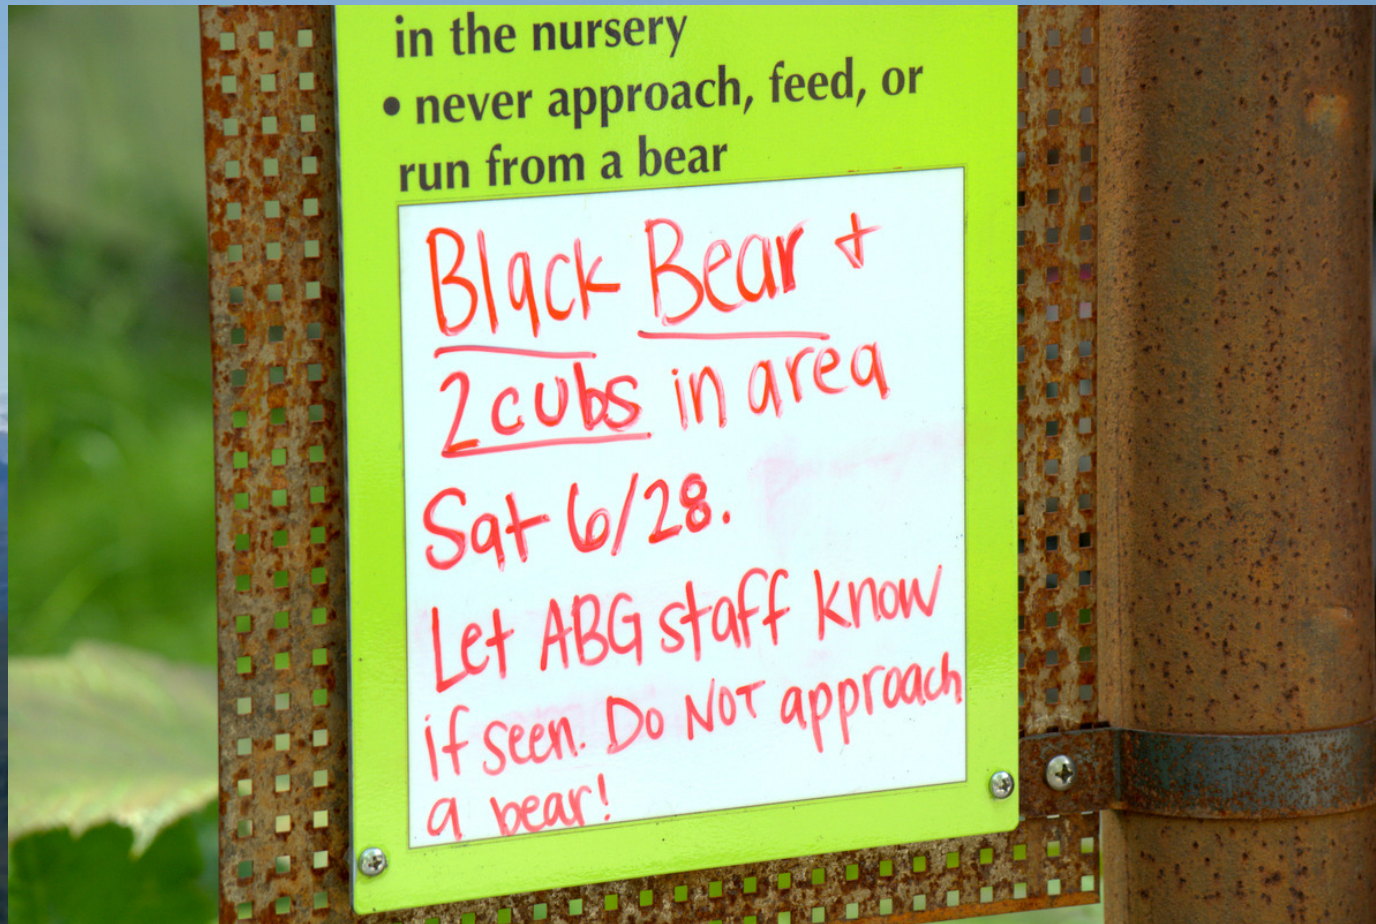 in the nursery
• never approach, feed, or
run from a bear
Black Bear +
2 cubs in area
Sat 6/28.
Let ABG staff know
if seen. Do NOT approach
a bear!